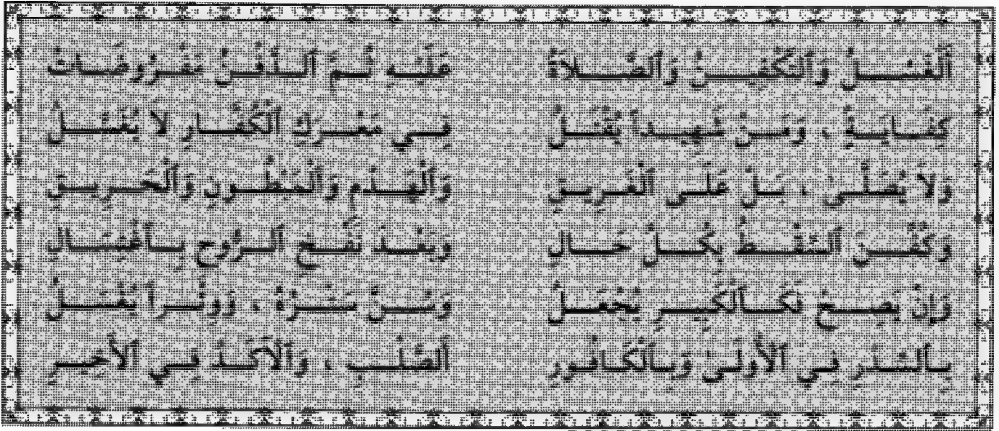 اَلْغُسْلُ وَالتَّكْفِيـنُ وَالصَّلَاةُ عَلَيْهِ ثُمَّ الدَّفْنُ مَفْرُوضَاتُ
كِفَايَةً ، وَمَنْ شَهِيداً يُقْتَلُ فِي مَعْرَكِ الْكُفَّارِ لاَ يُغْسَلُ
وَلاَ يُصَلَّىٰ ، بَلْ عَلَى الْغَرِيقِ وَالْهَدْمِ وَالْمَبْطُونِ وَالْحَرِيقِ
وَكَفِّنَ السِّقْطَ بِكُلِّ حَالِ وَبَعْدَ نَفْخِ الرُّوحِ بِاغْتِسَالِ
وَإِنْ يَصِحْ فَكَالْكَبِيرِ يُجْعَلُ وَسُنَّ سَتْرُهُ ، وَوِتْراً يُغْسَلُ
بِالسِّدْرِ فِي الْأُولَىٰ وَبِالْكَافُورِ الصُّلْبِ ، وَالْآكَدُ فِي الْأَخِيرِ